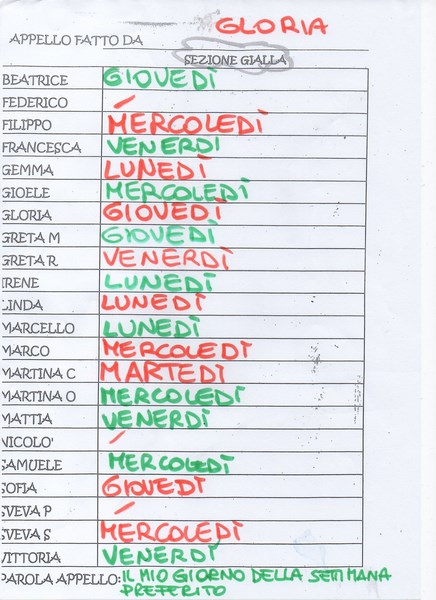 GLORIA
APPELLO FATTO DA
SEZIONE GIALLA
BEATRICE GIOVEDÌ
FEDERICO /
FILIPPO MERCOLEDÌ
FRANCESCA VENERDI
GEMMA LUNEDÌ
GIOELE MERCOLEDÌ
GLORIA GIOVEDÌ
GRETA M GIOVEDÌ
GRETA R VENERDÌ
IRENE LUNEDÌ
LINDA LUNEDÌ
MARCELLO LUNEDÌ
MARCO MERCOLEDÌ
MARTINA C MARTEDÌ
MARTINA O MERCOLEDÌ
MATTIA VENERDÌ
NICOLO' /
SAMUELE MERCOLEDÌ
SOFIA GIOVEDÌ
SVEVA P /
SVEVA S MERCOLEDÌ
VITTORIA VENERDÌ
PAROLA APPELLO: IL MIO GIORNO DELLA SETTIMANA
PREFERITO